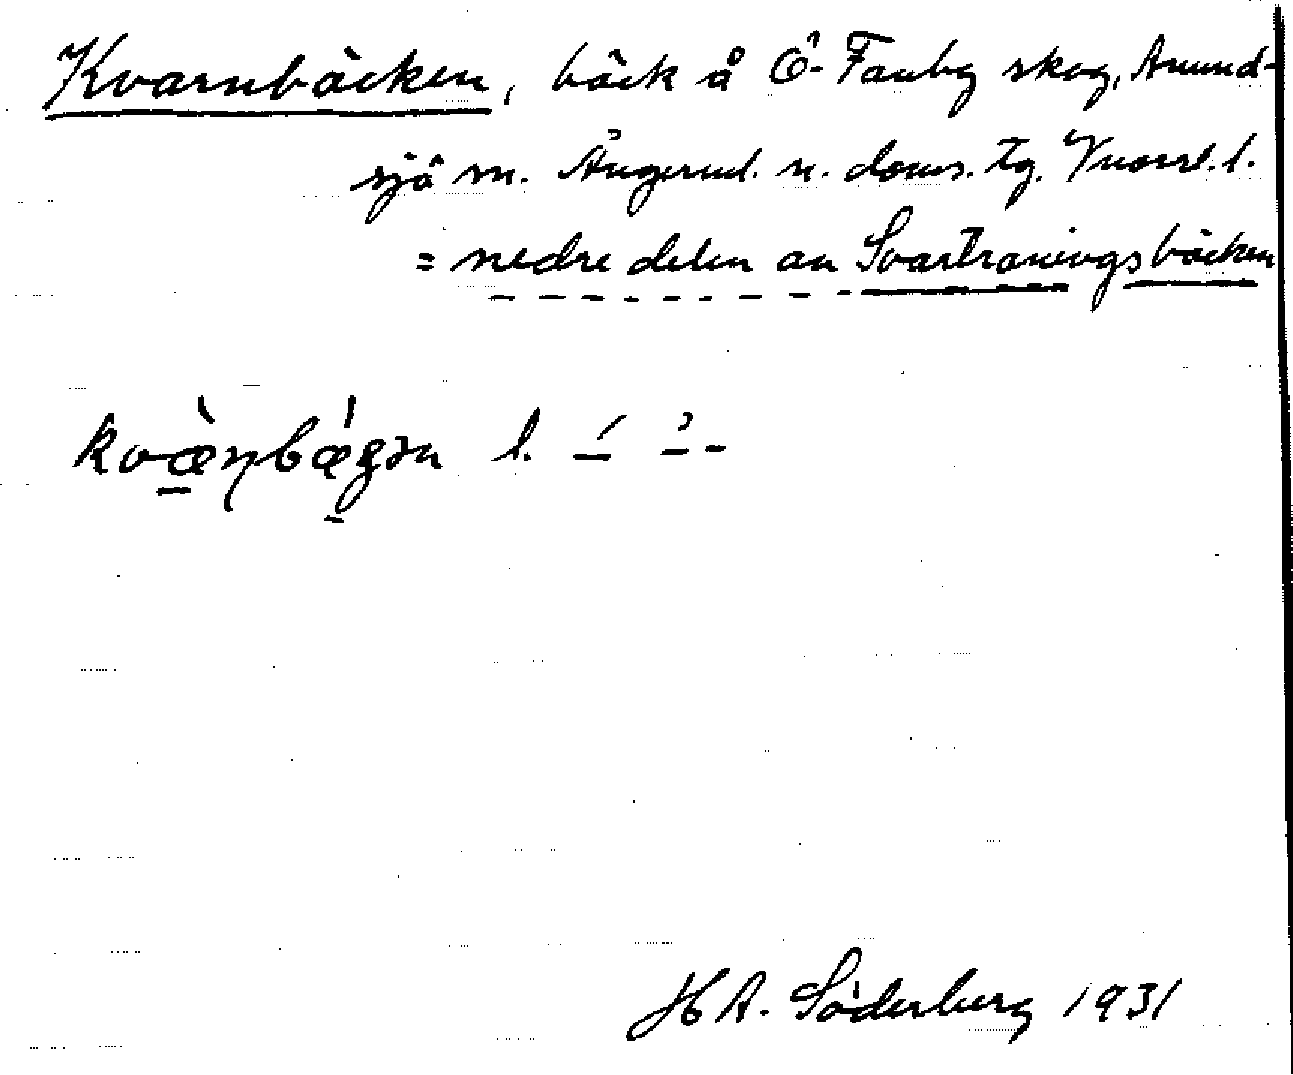 Kvarnbäcken, bäck å Ö. Fanbg skog, Anund-
sjö sn. Ångerml. n. doms. tg. l.
= nedre delen av Svarttraningsbäcken
l.
H A. Söderberg 1931